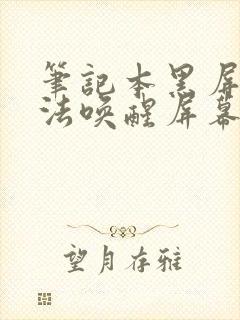 筆記本黑屏
法喚醒屏幕
望月存雅